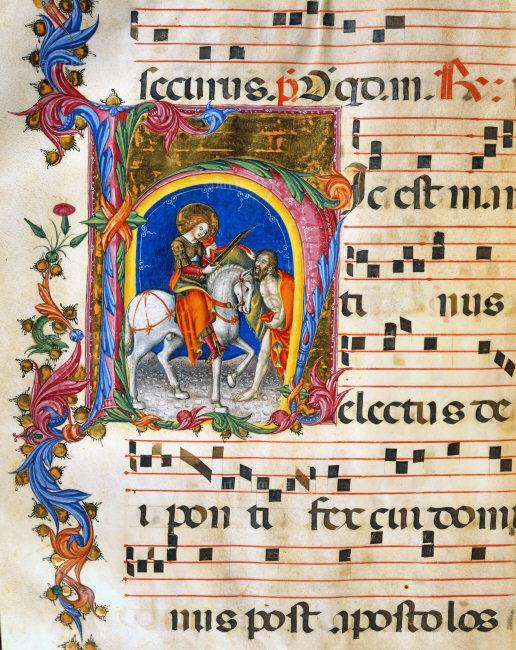 securus. p̃. D̃ q̃d. m. R̃:
Hic est mar
ti nus
electus de
i pon ti fex cui domi
nus post apostolos